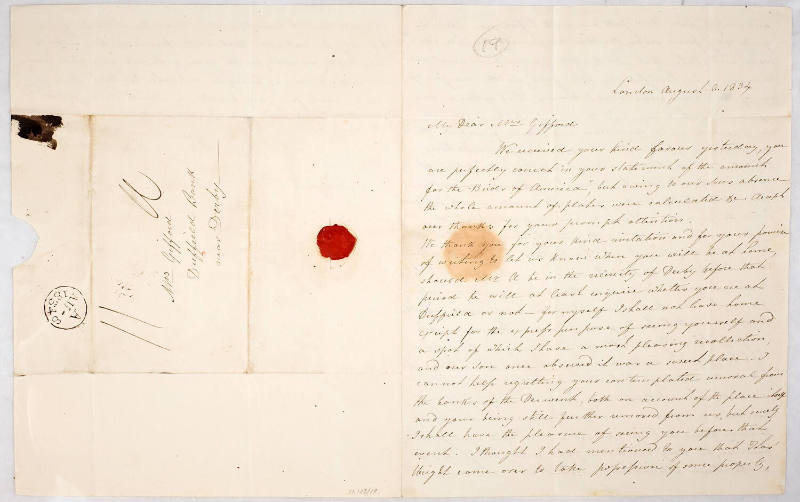 14
London August 6. 1834
My Dear Mrs Gifford
We received your kind favour yesterday, you
are perfectly correct in your statement of the amount
for the "Birds of America", but owing to our sons absence
the whole amount of plates were calculated &c Accept
our thanks for your prompt attention.
We thank you for your kind invitation and for your promise
of writing to let us know when you will be at home,
should Mr A be in the vicinity of Derby before that
period he will at least enquire whether you are at
Duffield or not – for myself I shall not leave home
except for the express purpose of seeing yourself and
a spot of which I have a most pleasing recollection,
and our son once observed it was a sweet place. I
cannot help regretting your contemplated removal from
the banks of the Derwent, both on account of the place itself
and your being still further removed from us, but surely
I shall have the pleasure of seeing you before that
event. I thought I had mentioned to you that Thos
Wright came over to take possession of some property,
Mrs Gifford
Duffield Bank
near Derby
1834